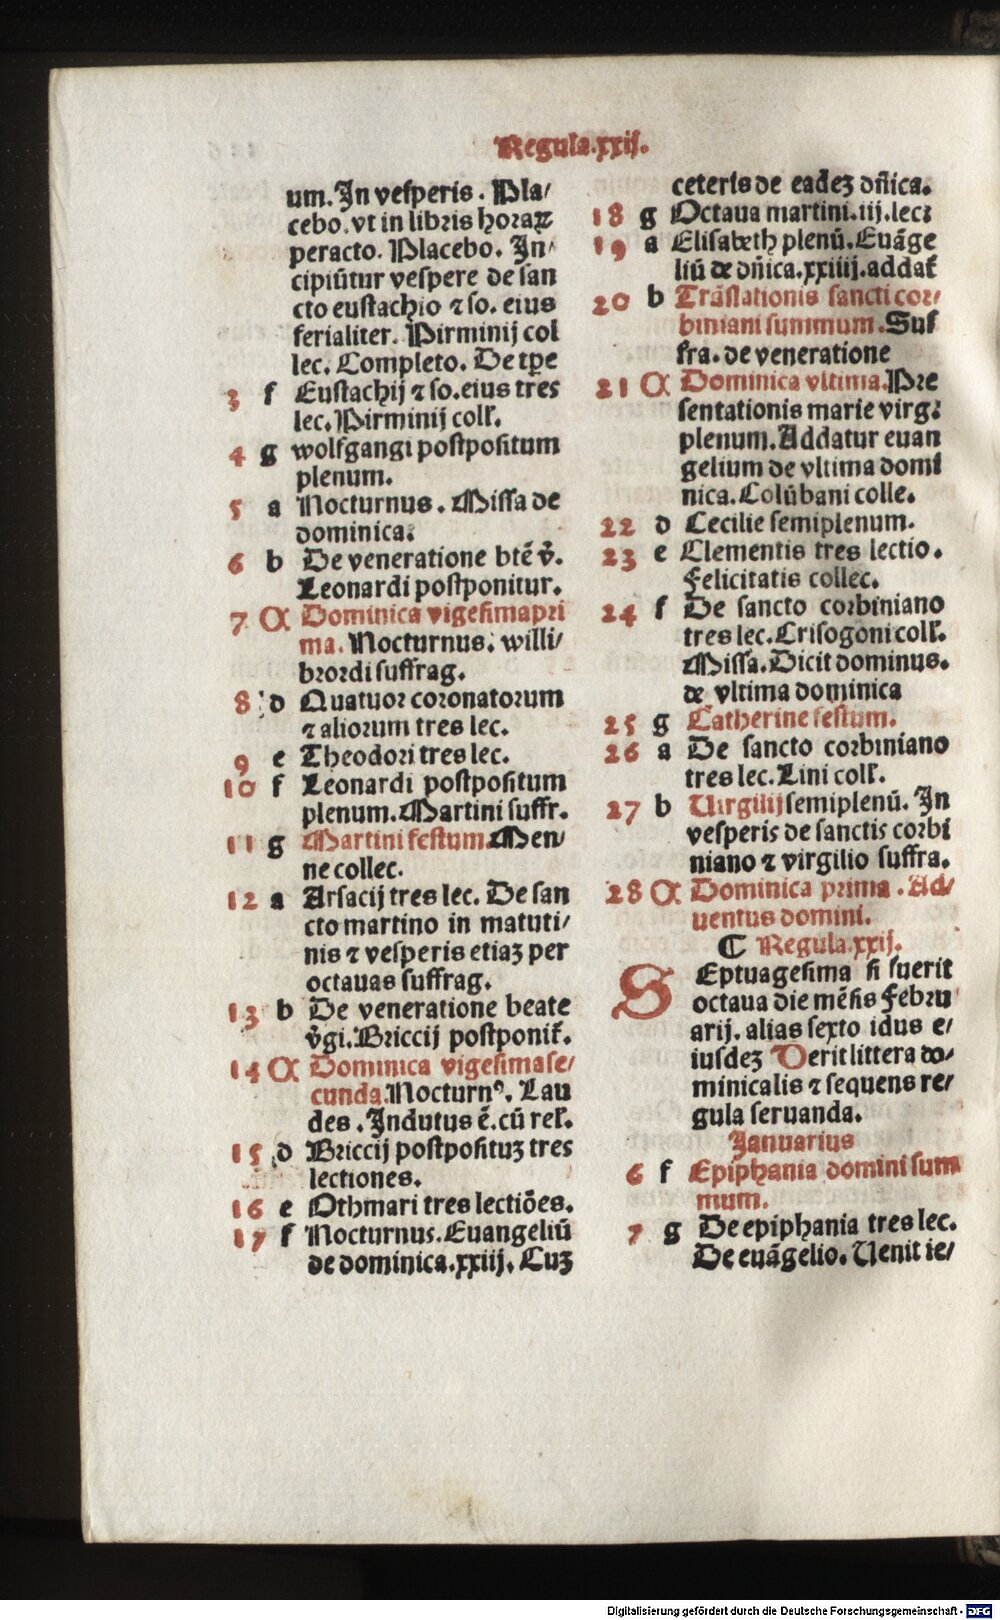 Regula.xxij.
um. In vesperis. Pla/
cebo. vt in libris horaꝝ
peracto. Placebo. In/
cipiūtur vespere de san
cto eustachio ⁊ so. eius
ferialiter. Pirminij col
lec. Completo. De tꝑe
3 f Eustachij ⁊ so. eius tres
lec. Pirminij coll̓.
4 g wolfgangi postpositum
plenum.
5 a Nocturnus. Missa de
dominica.
6 b De veneratione btē v̄.
Leonardi postponitur.
7 A Dominica vigesimapri
ma. Nocturnus. willi/
brordi suffrag.
8 d Quatuor coronatorum
⁊ aliorum tres lec.
9 e Theodori tres lec.
10 f Leonardi postpositum
plenum. Martini suffr.
11 g Martini festum. Men/
ne collec.
12 a Arsacij tres lec. De san
cto martino in matuti/
nis ⁊ vesperis etiaꝫ per
octauas suffrag.
13 b De veneratione beate
v̄gi. Briccij postponit̄.
14 A Dominica vigesimase/
cunda. Nocturnꝰ. Lau
des. Indutus ē. cū rel̓.
15 d Briccij postposituꝫ tres
lectiones.
16 e Othmari tres lectiōes.
17 f Nocturnus. Euangeliū
de dominica. xxiij. Cuꝫ
ceteris de eadeꝫ dn̄ica.
18 g Octaua martini. iij. lec:
19 a Elisabeth plenū. Euāge
liū de dn̄ica. xxiiij. addat̄
20 b Trāslationis sancti cor/
biniani summum. Suf
fra. de veneratione
21 A Dominica vltima. Pre
sentationis marie virg:
plenum. Addatur euan
gelium de vltima domi
nica. Colūbani colle.
22 d Cecilie semiplenum.
23 e Clementis tres lectio.
Felicitatis collec.
24 f De sancto corbiniano
tres lec. Crisogoni coll̓.
Missa. Dicit dominus.
de vltima dominica
25 g Catherine festum.
26 a De sancto corbiniano
tres lec. Lini coll̓.
27 b Virgilij semiplenū. In
vesperis de sanctis corbi
niano ⁊ virgilio suffra.
28 A Dominica prima. Ad/
uentus domini.
¶ Regula. xxij.
SEptuagesima si fuerit
octaua die mēsis Febru
arij. alias sexto idus e/
iusdeꝫ Derit littera do/
minicalis ⁊ sequens re/
gula seruanda.
Januarius
6 f Epiphania domini sum
mum.
7 g De epiphania tres lec.
De euāgelio. Venit ie/
Digitalisierung gefördert durch die Deutsche Forschungsgemeinschaft - DFG